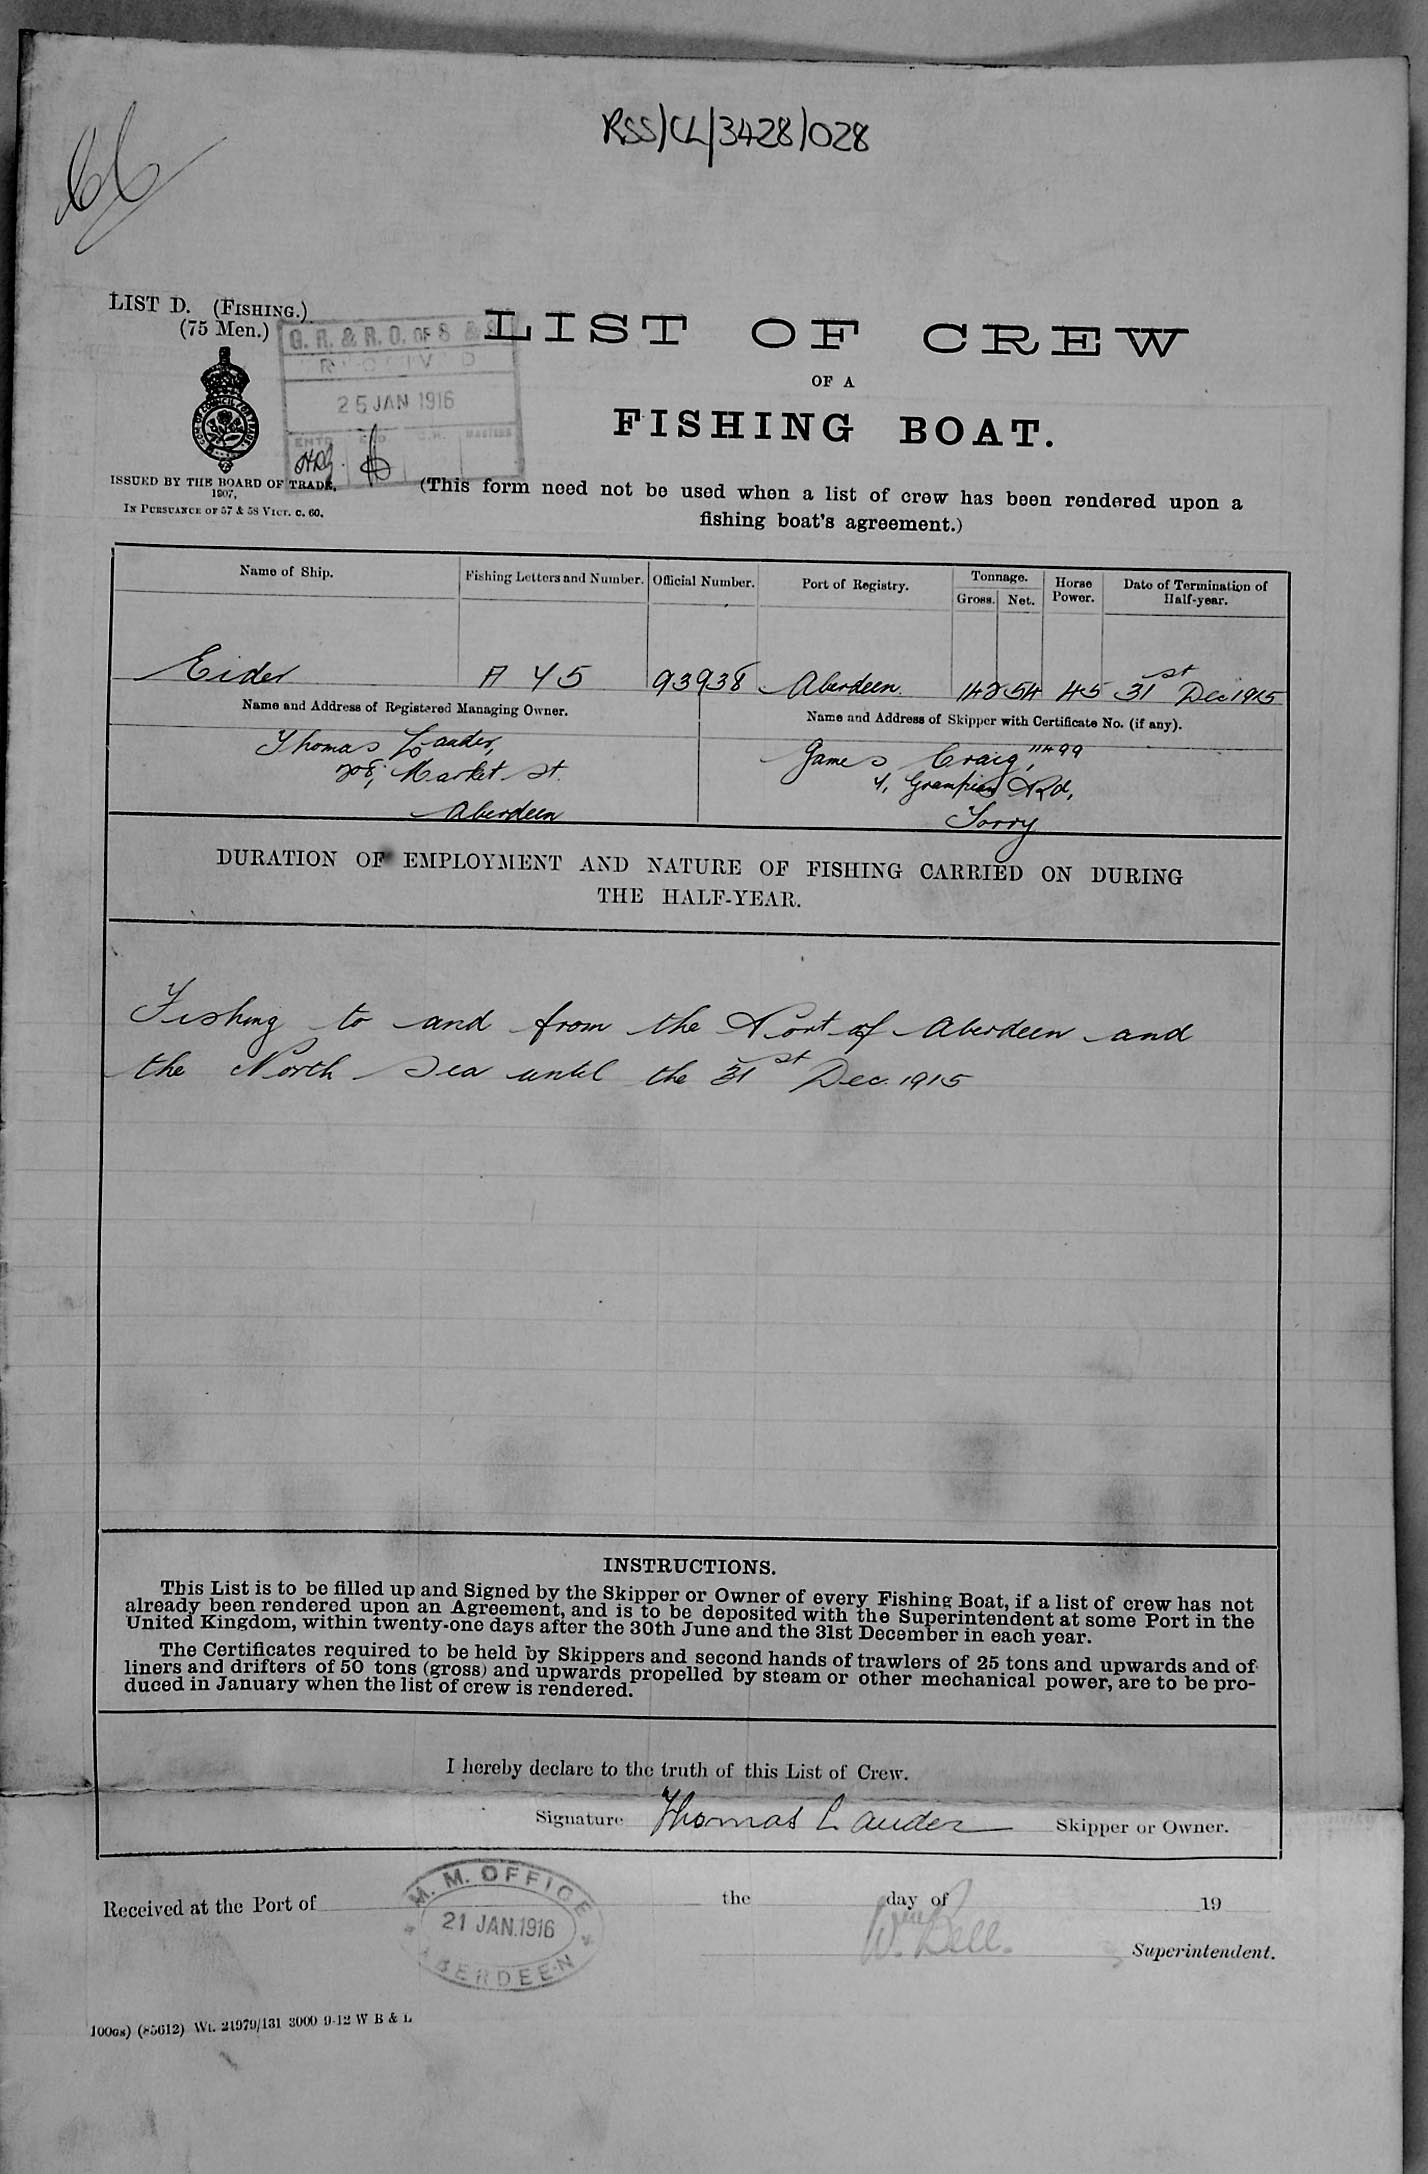 RSS/CL/3428/028
66
LIST D. (FISHING.)
(75 Men.)
G. R. & R. O. OF S & S
RECEIVED
25 JAN 1916
ENTD
MASTERS
ISSUED BY THE BOARD OF TRADE,
1907,
IN PURSUANCE OF 57 & 58 VICT. C. 60.
LIST OF CREW
OF A
FISHING BOAT.
(This form need not be used when a list of crew has been rendered upon a
fishing boat's agreement.)
Name of Ship. Fishing Letters and Number. Official Number. Port of Registry. Tonnage. Gross. Net. Horse Power. Date of Termination of Half-year.
Eider A 45 93938 Aberdeen. 142 54 45 31st Dec 1915
Name and Address of Registered Managing Owner.
Thomas Lauder,
Market St.
Aberdeen
Name and Address of Skipper with Certificate No. (if any).
James Craig,
4, Grampian Rd,
Torry
DURATION OF EMPLOYMENT AND NATURE OF FISHING CARRIED ON DURING
THE HALF-YEAR.
Fishing to and from the Port of Aberdeen and
the North Sea until the 31st Dec. 1915
INSTRUCTIONS.
This List is to be filled up and Signed by the Skipper or Owner of every Fishing Boat, if a list of crew has not
already been rendered upon an Agreement, and is to be deposited with the Superintendent at some Port in the
United Kingdom, within twenty-one days after the 30th June and the 31st December in each year.
The Certificates required to be held by Skippers and second hands of trawlers of 25 tons and upwards and of
liners and drifters of 50 tons (gross) and upwards propelled by steam or other mechanical power, are to be pro-
duced in January when the list of crew is rendered.
I hereby declare to the truth of this List of Crew.
Signature Thomas Lauder Skipper or Owner.
Received at the Port of the day of 19
M. M. OFFICE
21 JAN. 1916
ABERDEEN
Wm Bell.
Superintendent.
100Gs) (85612) Wt. 21979/131 3000 9-12 W B & L